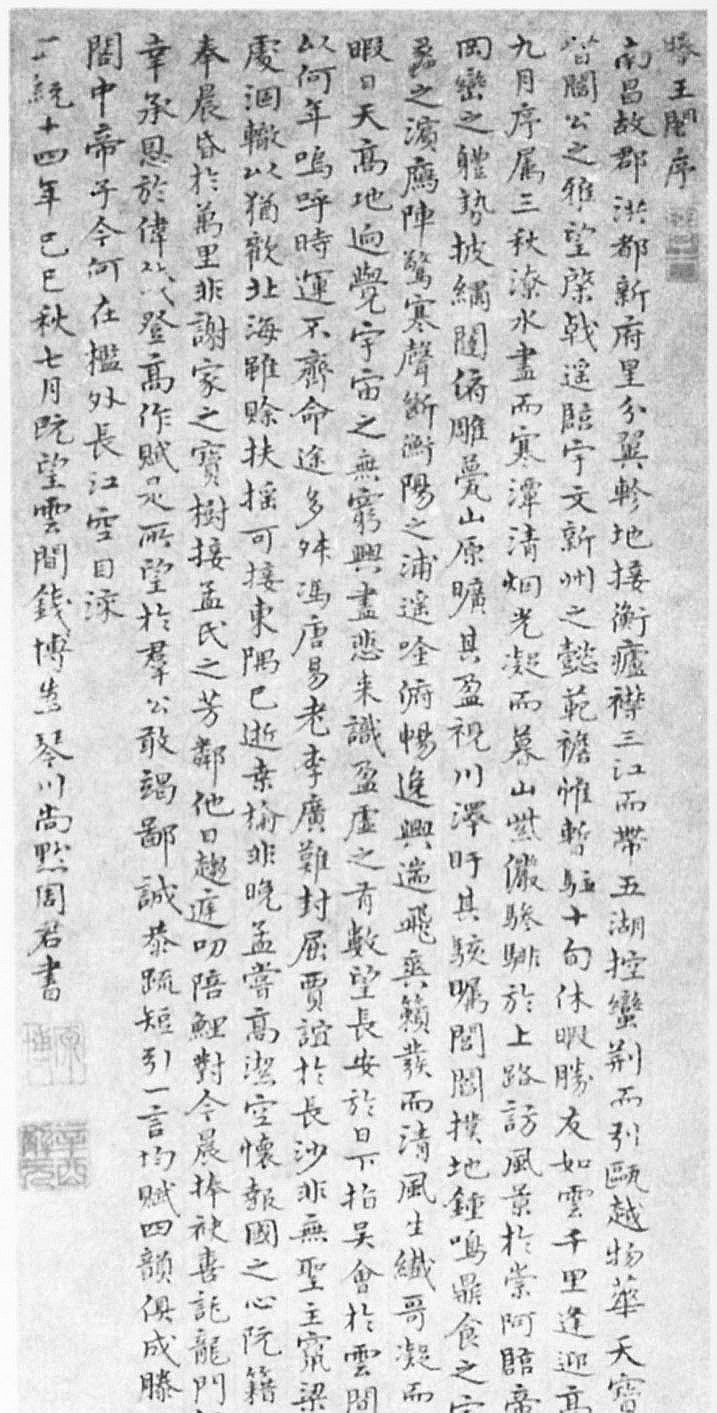 滕王閣序
南昌故郡洪都新府星分翼軫地接衡廬襟三江而帶五湖控蠻荆而引甌越物華天寶
皆閻公之雅望棨戟遥臨宇文新州之懿範襜惟暫駐十旬休暇勝友如雲千里逢迎高
九月序屬三秋潦水盡而寒潭清烟光凝而暮山紫儼驂騑於上路訪風景於崇阿臨帝
岡巒之體勢披繡闥俯雕甍山原曠其盈視川澤盱其駭矚閭閻撲地鍾鳴鼎食之
蠡之濱鴈陣驚寒聲斷衡陽之浦遥吟俯暢逸興遄飛爽籟發而清風生纖哥凝而
暇日天高地迥覺宇宙之無窮興盡悲来識盈虚之有數望長安於日下指吴會於雲間
以何年嗚呼時運不齊命途多舛馮唐易老李廣難封屈賈誼於長沙非無聖主竄梁
處涸轍以猶歡北海雖賒扶摇可接東隅已逝桑榆非晚孟嘗高潔空懷報國之心阮籍
奉晨昏於萬里非謝家之寳樹接孟氏之芳鄰他日趨庭叨陪鯉對今晨捧袂喜託龍門
幸承恩於偉餞登高作賦是所望於羣公敢竭鄙誠恭疏短引一言均賦四韻俱成滕
閣中帝子今何在檻外長江空自流
正統十四年己巳秋七月既望雲間錢博為琴川尚默周君書